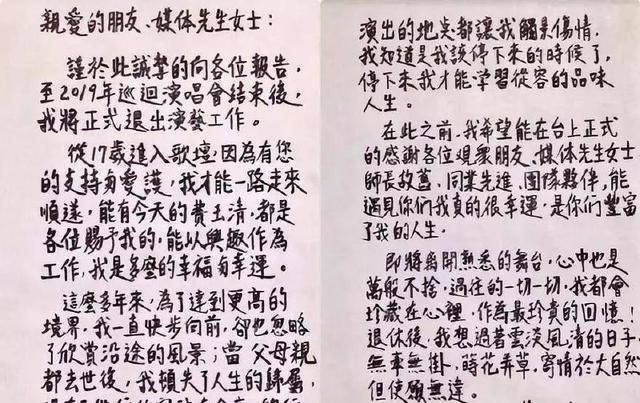 親愛的朋友、媒体先生女士：
謹於此誠摯的向各位報告，
至2019年巡迴演唱會結束後，
我將正式退出演藝工作。
從17歲進入歌壇，因為有您
的支持与愛護，我才能一路走來
順遂，能有今天的費玉清，都是
各位賜予我的，能以興趣作為
工作，我是多麼的幸福与幸運。
這麼多年來，為了達到更高的
境界，我一直快步向前，卻也忽略
了欣賞沿途的風景；當父母親
都去世後，我頓失了人生的歸屬，
演出的地点都讓我觸景傷情，
我知道是我該停下來的時候了，
停下來我才能学習從容的品味
人生。
在此之前，我希望能在台上正式
的感謝各位观眾朋友、媒体先生女士
師長故舊、同業先進、團隊夥伴，能
遇見你們我真的很幸運，是你們豐富
了我的人生。
即將離開熟悉的舞台，心中也是
萬般不捨，過往的一切一切，我都會
珍藏在心裡，作為最珍貴的回憶！
退休後，我想過著雲淡風清的日子，
無牽無掛，蒔花弄草，寄情於大自然
但使願無違。